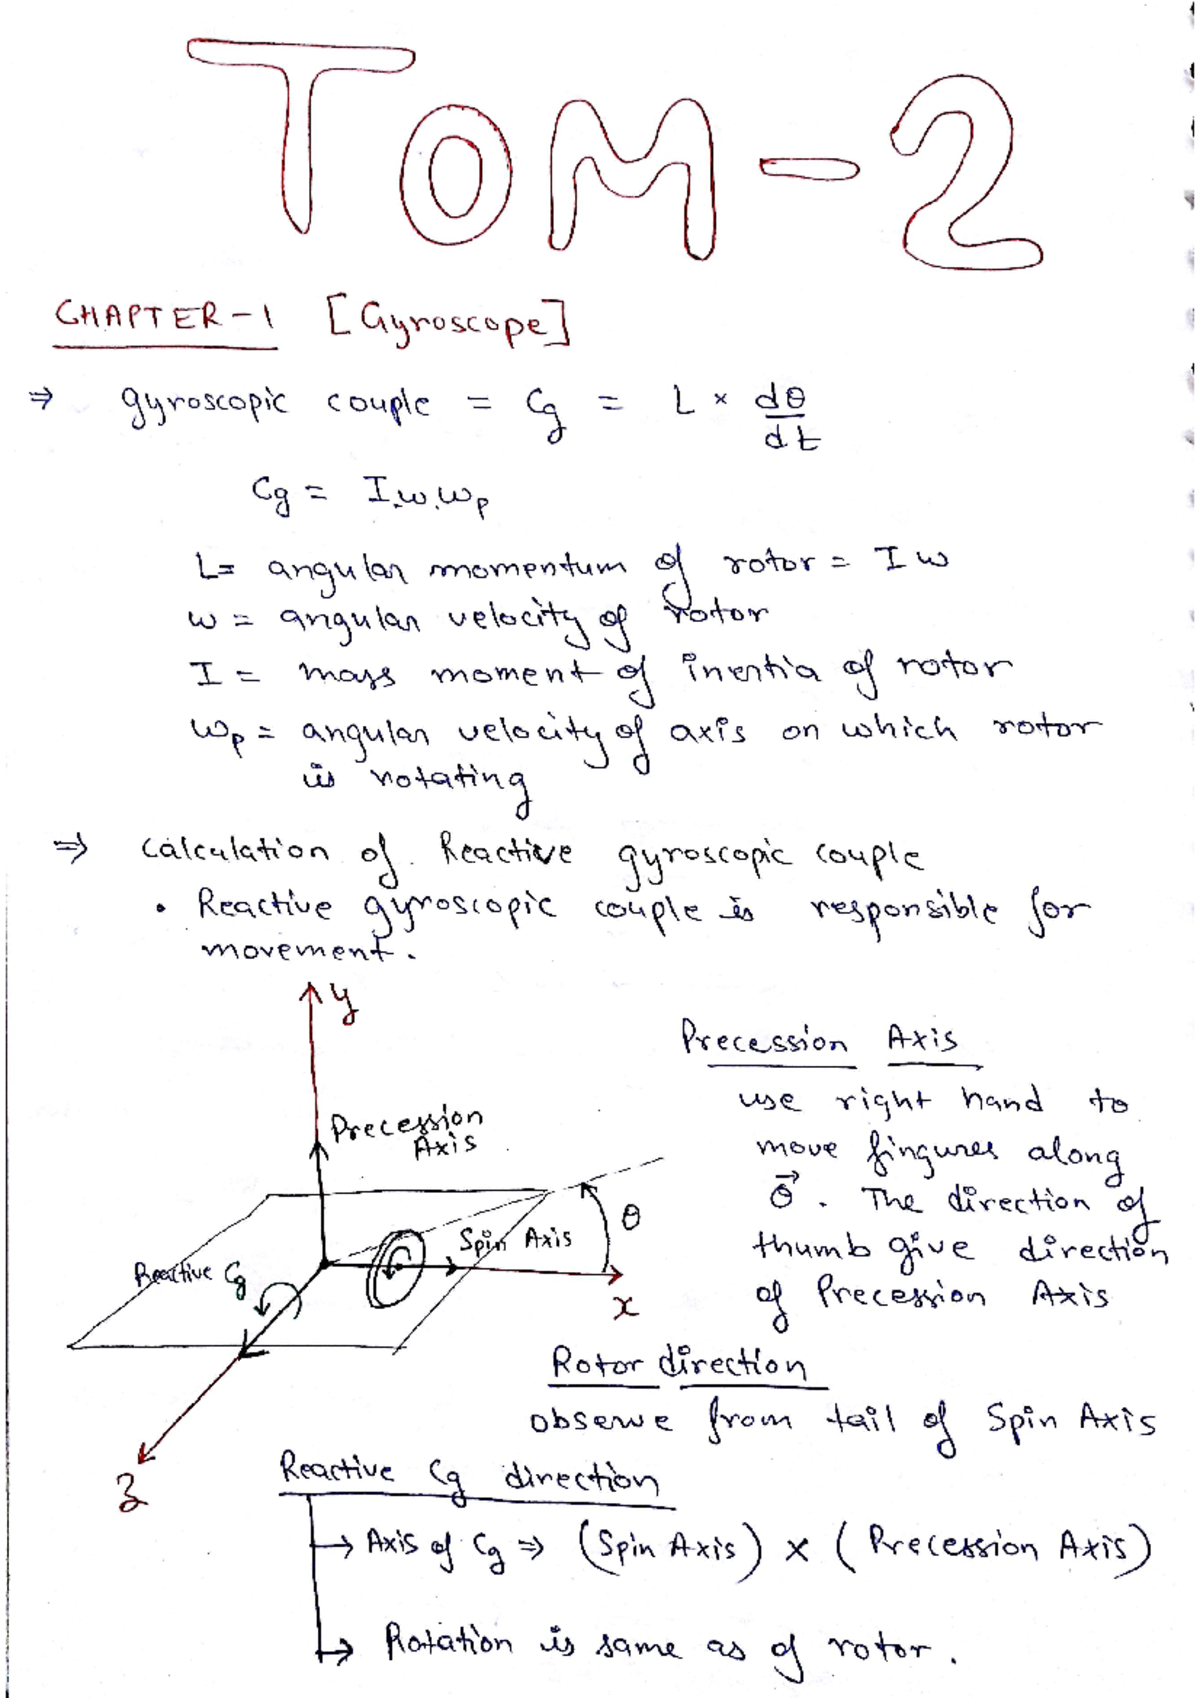 TOM-2
CHAPTER-1 [Gyroscope]
⇒ gyroscopic couple = Cg = L × dθ/dt
Cg = I.ω.ωp
L= angular momentum of rotor = I ω
ω = angular velocity of rotor
I = mass moment of inertia of rotor
ωp = angular velocity of axis on which rotor
is rotating
⇒ Calculation of Reactive gyroscopic couple
• Reactive gyroscopic couple is responsible for
movement.
y
Precession
Axis
θ
Spin Axis
Reactive Cg
x
z
Precession Axis
use right hand to
move fingures along
θ⃗. The direction of
thumb give direction
of Precession Axis
Rotor direction
observe from tail of Spin Axis
Reactive Cg direction
→ Axis of Cg ⇒ (Spin Axis) × (Precession Axis)
→ Rotation is same as of rotor.